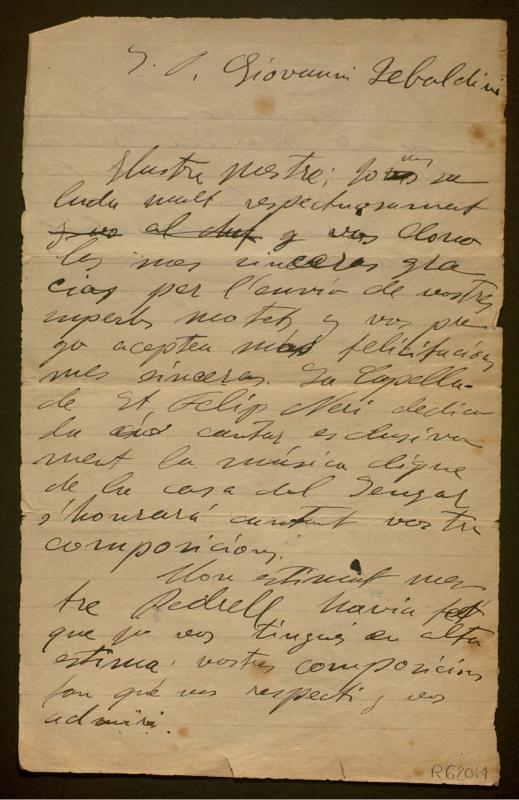 S. P. Giovanni Tebaldini
Ilustre mestre; jo us sa
luda molt respectuosament
y vos dono
las mes sinceras gra
cias per l'envío de vostres
superbs motets y vos pre
go acepteu mas felicitacións
mes sinceras. La Capella
de St Felip Neri dedica
da a cantar esclusiva
ment la música digne
de la casa del Senyor
s'honrará cantant vostres
composicións.
Mon estimat mes
tre Pedrell havia fet
que jo vos tingués en alta
estima; vostres composicións
fan que us respecti y vos
admiri.
R62044